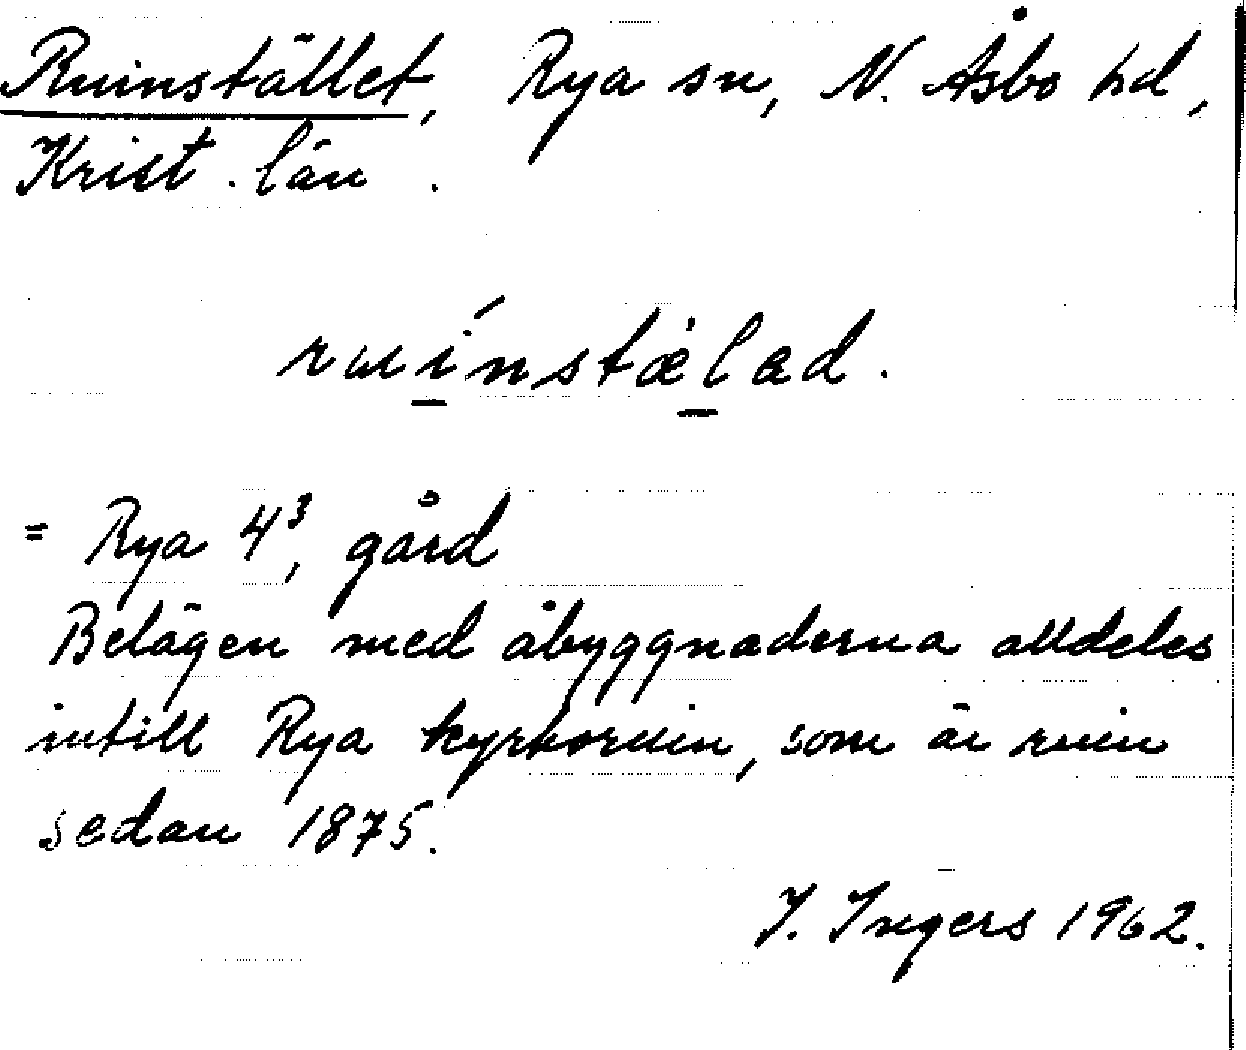 Ruinstället, Rya sn, N. Åsbo hd,
Krist. län.
ruínstælad.
= Rya 4³, gård
Belägen med åbyggnaderna alldeles
intill Rya kyrkoruin, som är ruin
sedan 1875.
I. Ingers 1962.